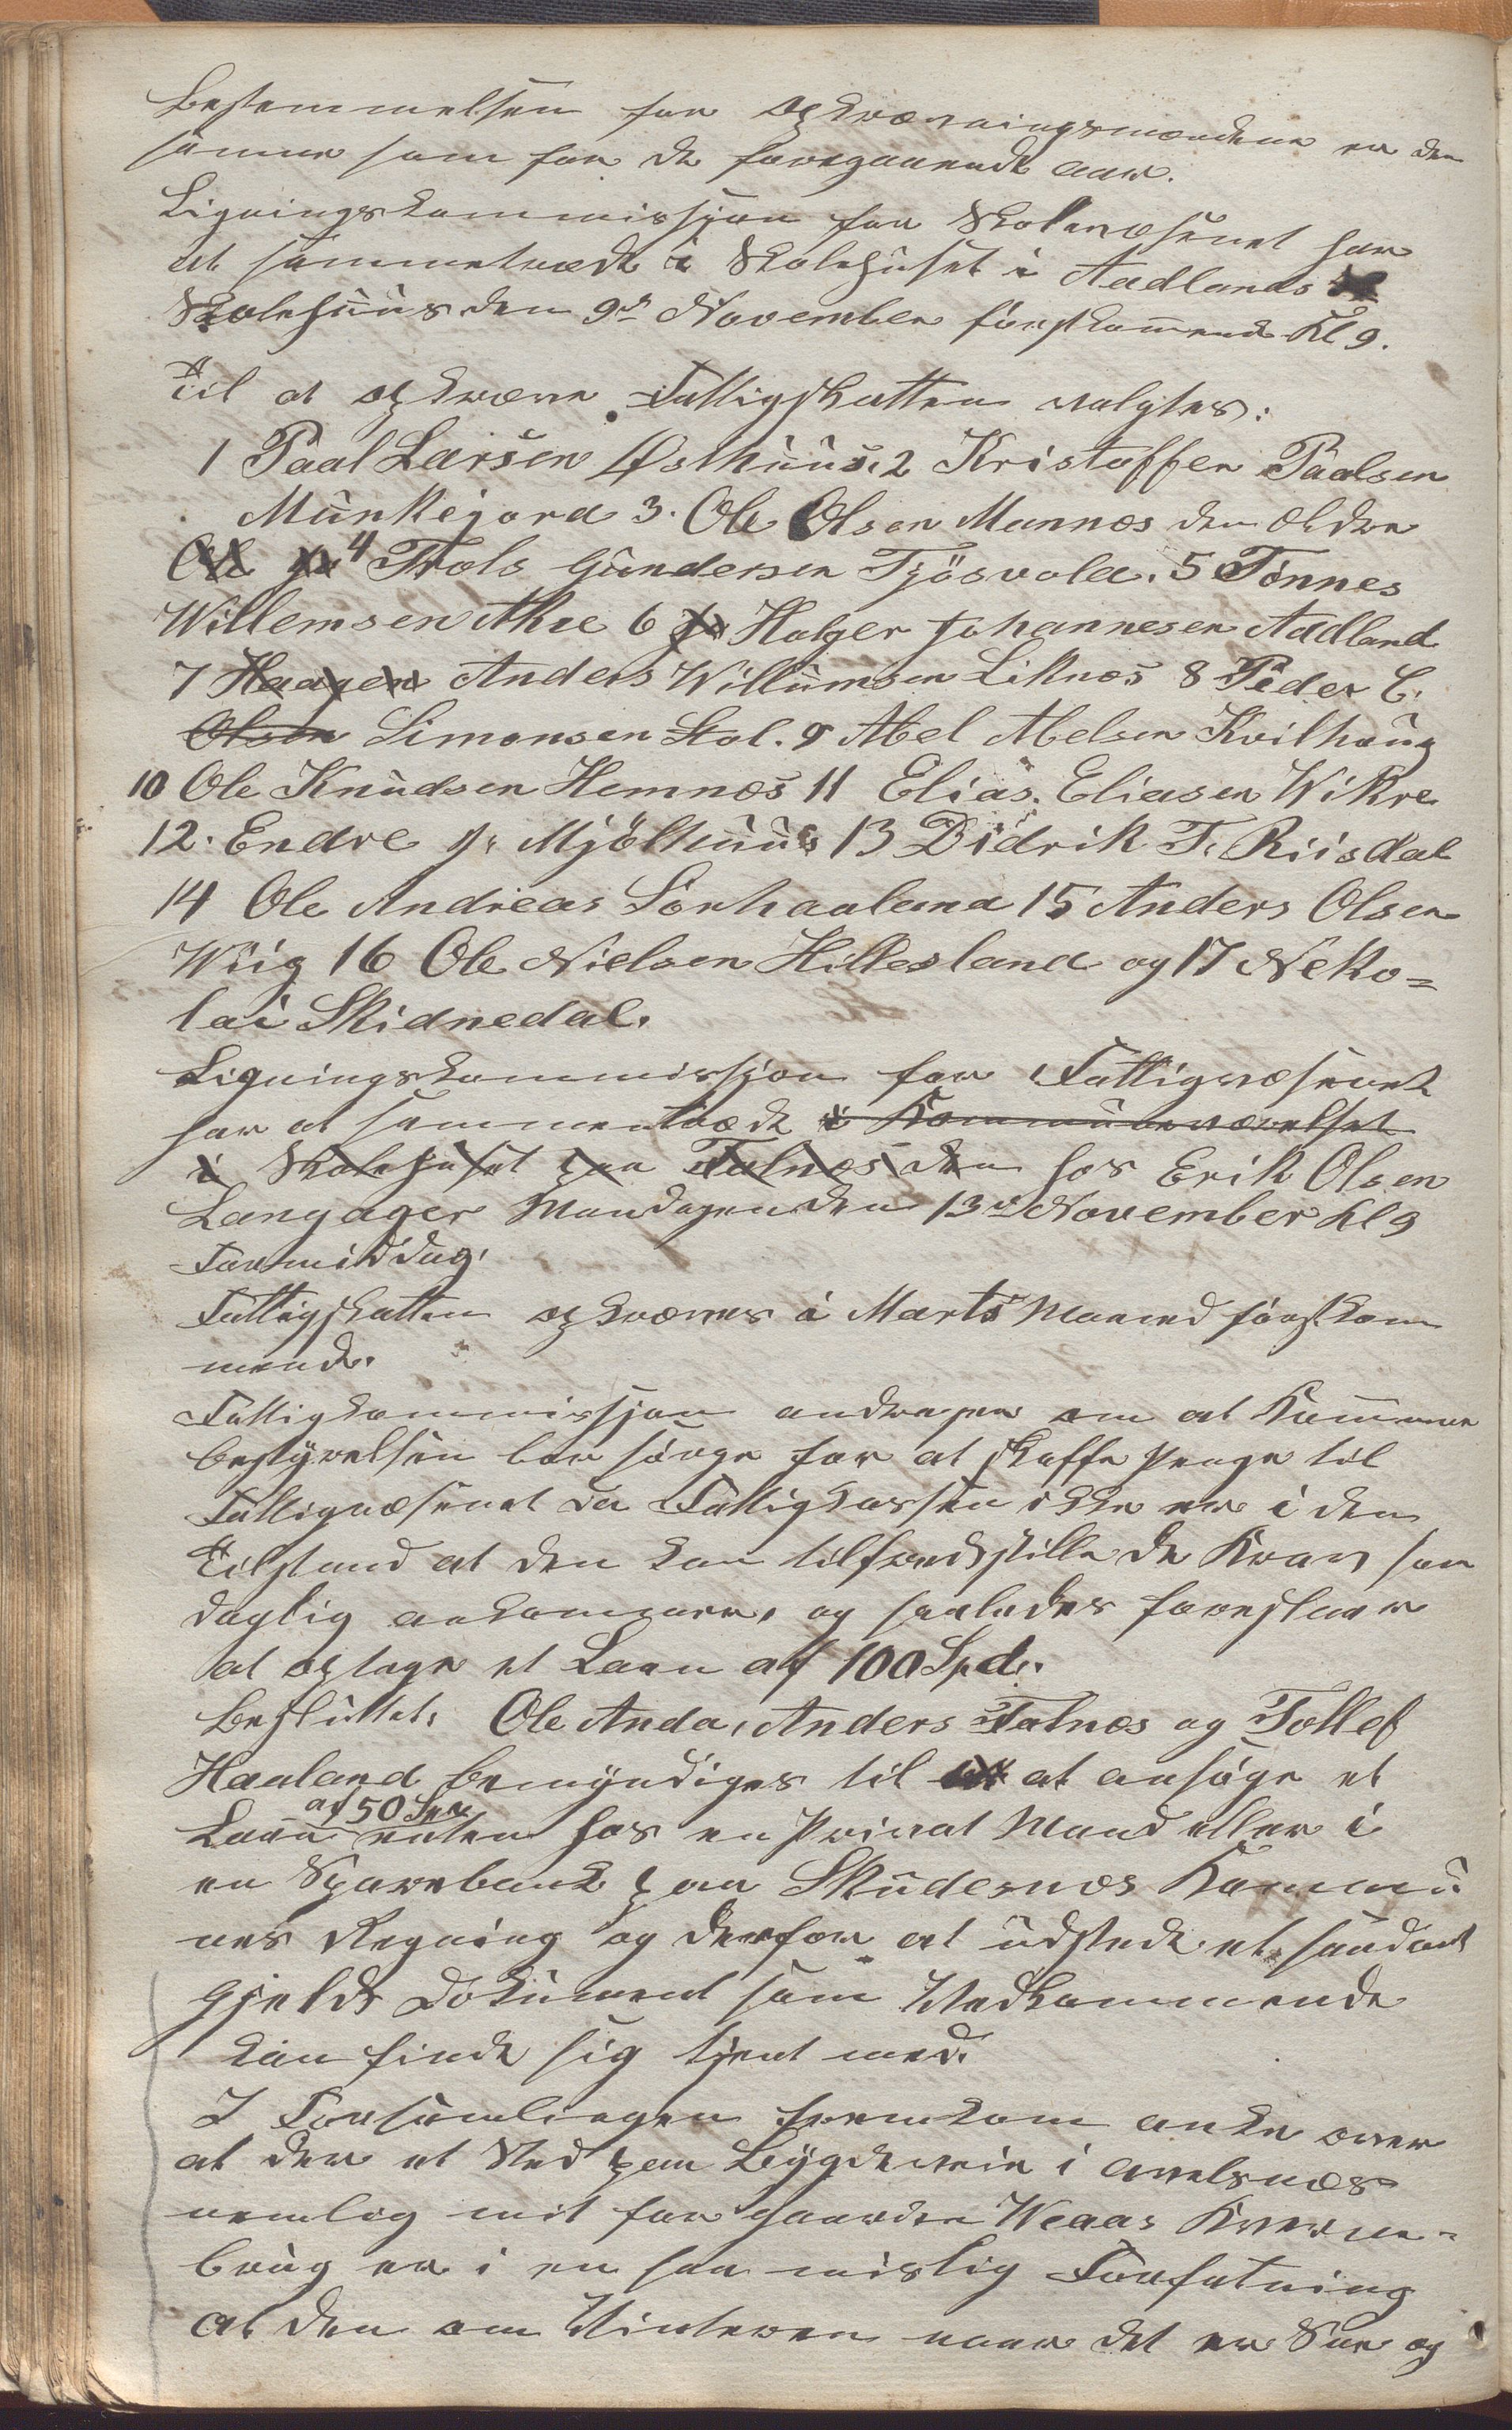 Bestemmelsen for Opkrævningsmændene er den
samme som for de foregaaende aar.
Ligningskommissjon for Skolevæsenet har
at sammentræde i Skolehuset i Aadlands
Skolehuus den 9de November førstkommende Kl 9.
Til at opkræve Fattigskatten valgtes:
1 Paal Larsen Østhuus. 2 Kristoffer Paalsen
Munkejord 3. Ole Olsen Mannes den ældre
Ole 4 Trols Gundersen Tjösvold. 5 Tönnes
Willemsen Akre 6 Holger Johannesen Aadland
7 Haagen Anders Willumsen Liknes 8 Peder C.
Olsen Simonsen Stol. 9 Abel Abelsen Kvilhaug
10 Ole Knudsen Hemnes 11 Elias Eliasen Wikre
12. Endre J. Mjölhuus 13 Didrik T. Riisdal
14 Ole Andreas Sörhaaland 15 Anders Olsen
Wiig 16 Ole Nielsen Hillesland og 17 Neko=
lai Skidnedal.
Ligningskommissjon for Fattigvæsenet
har at sammentræde i Kommuneværelset
i Skolehuset paa Falnæs den hos Erik Olsen
Langager Mandagen den 13de November Kl 9
Formiddag.
Fattigskatten opkræves i Marts Maaned førstkom
mende.
Fattigkommissjon andrager om at Kommune
bestyrelsen bør sørge for at skaffe Penge til
Fattigvæsenet da Fattigkassen ikke er i den
Tilstand at den kan tilfredsstille de Krav som
daglig ankommer, og saaledes foreslaar
at optage et Laan af 100 Spd.
Besluttet. Ole Anda, Anders Falnes og Tollef
Haaland bemyndiges til at ansøge et
af 50 Spd
Laan enten hos en Privat Mand eller i
en Sparebank paa Skudesnes Kommu
nes Regning og derfor at udstede et saadant
Gjelds Dokument som Vedkommende
kan finde sig tjent med.
I Forsamlingen fremkom anke over
at der et Sted paa Bygdeveie i Avelsnæs
nemlig mit for gaarden Weaas Kverne=
brug er i en saa mislig Forfatning
at den om Vinteren naar det er Sne og